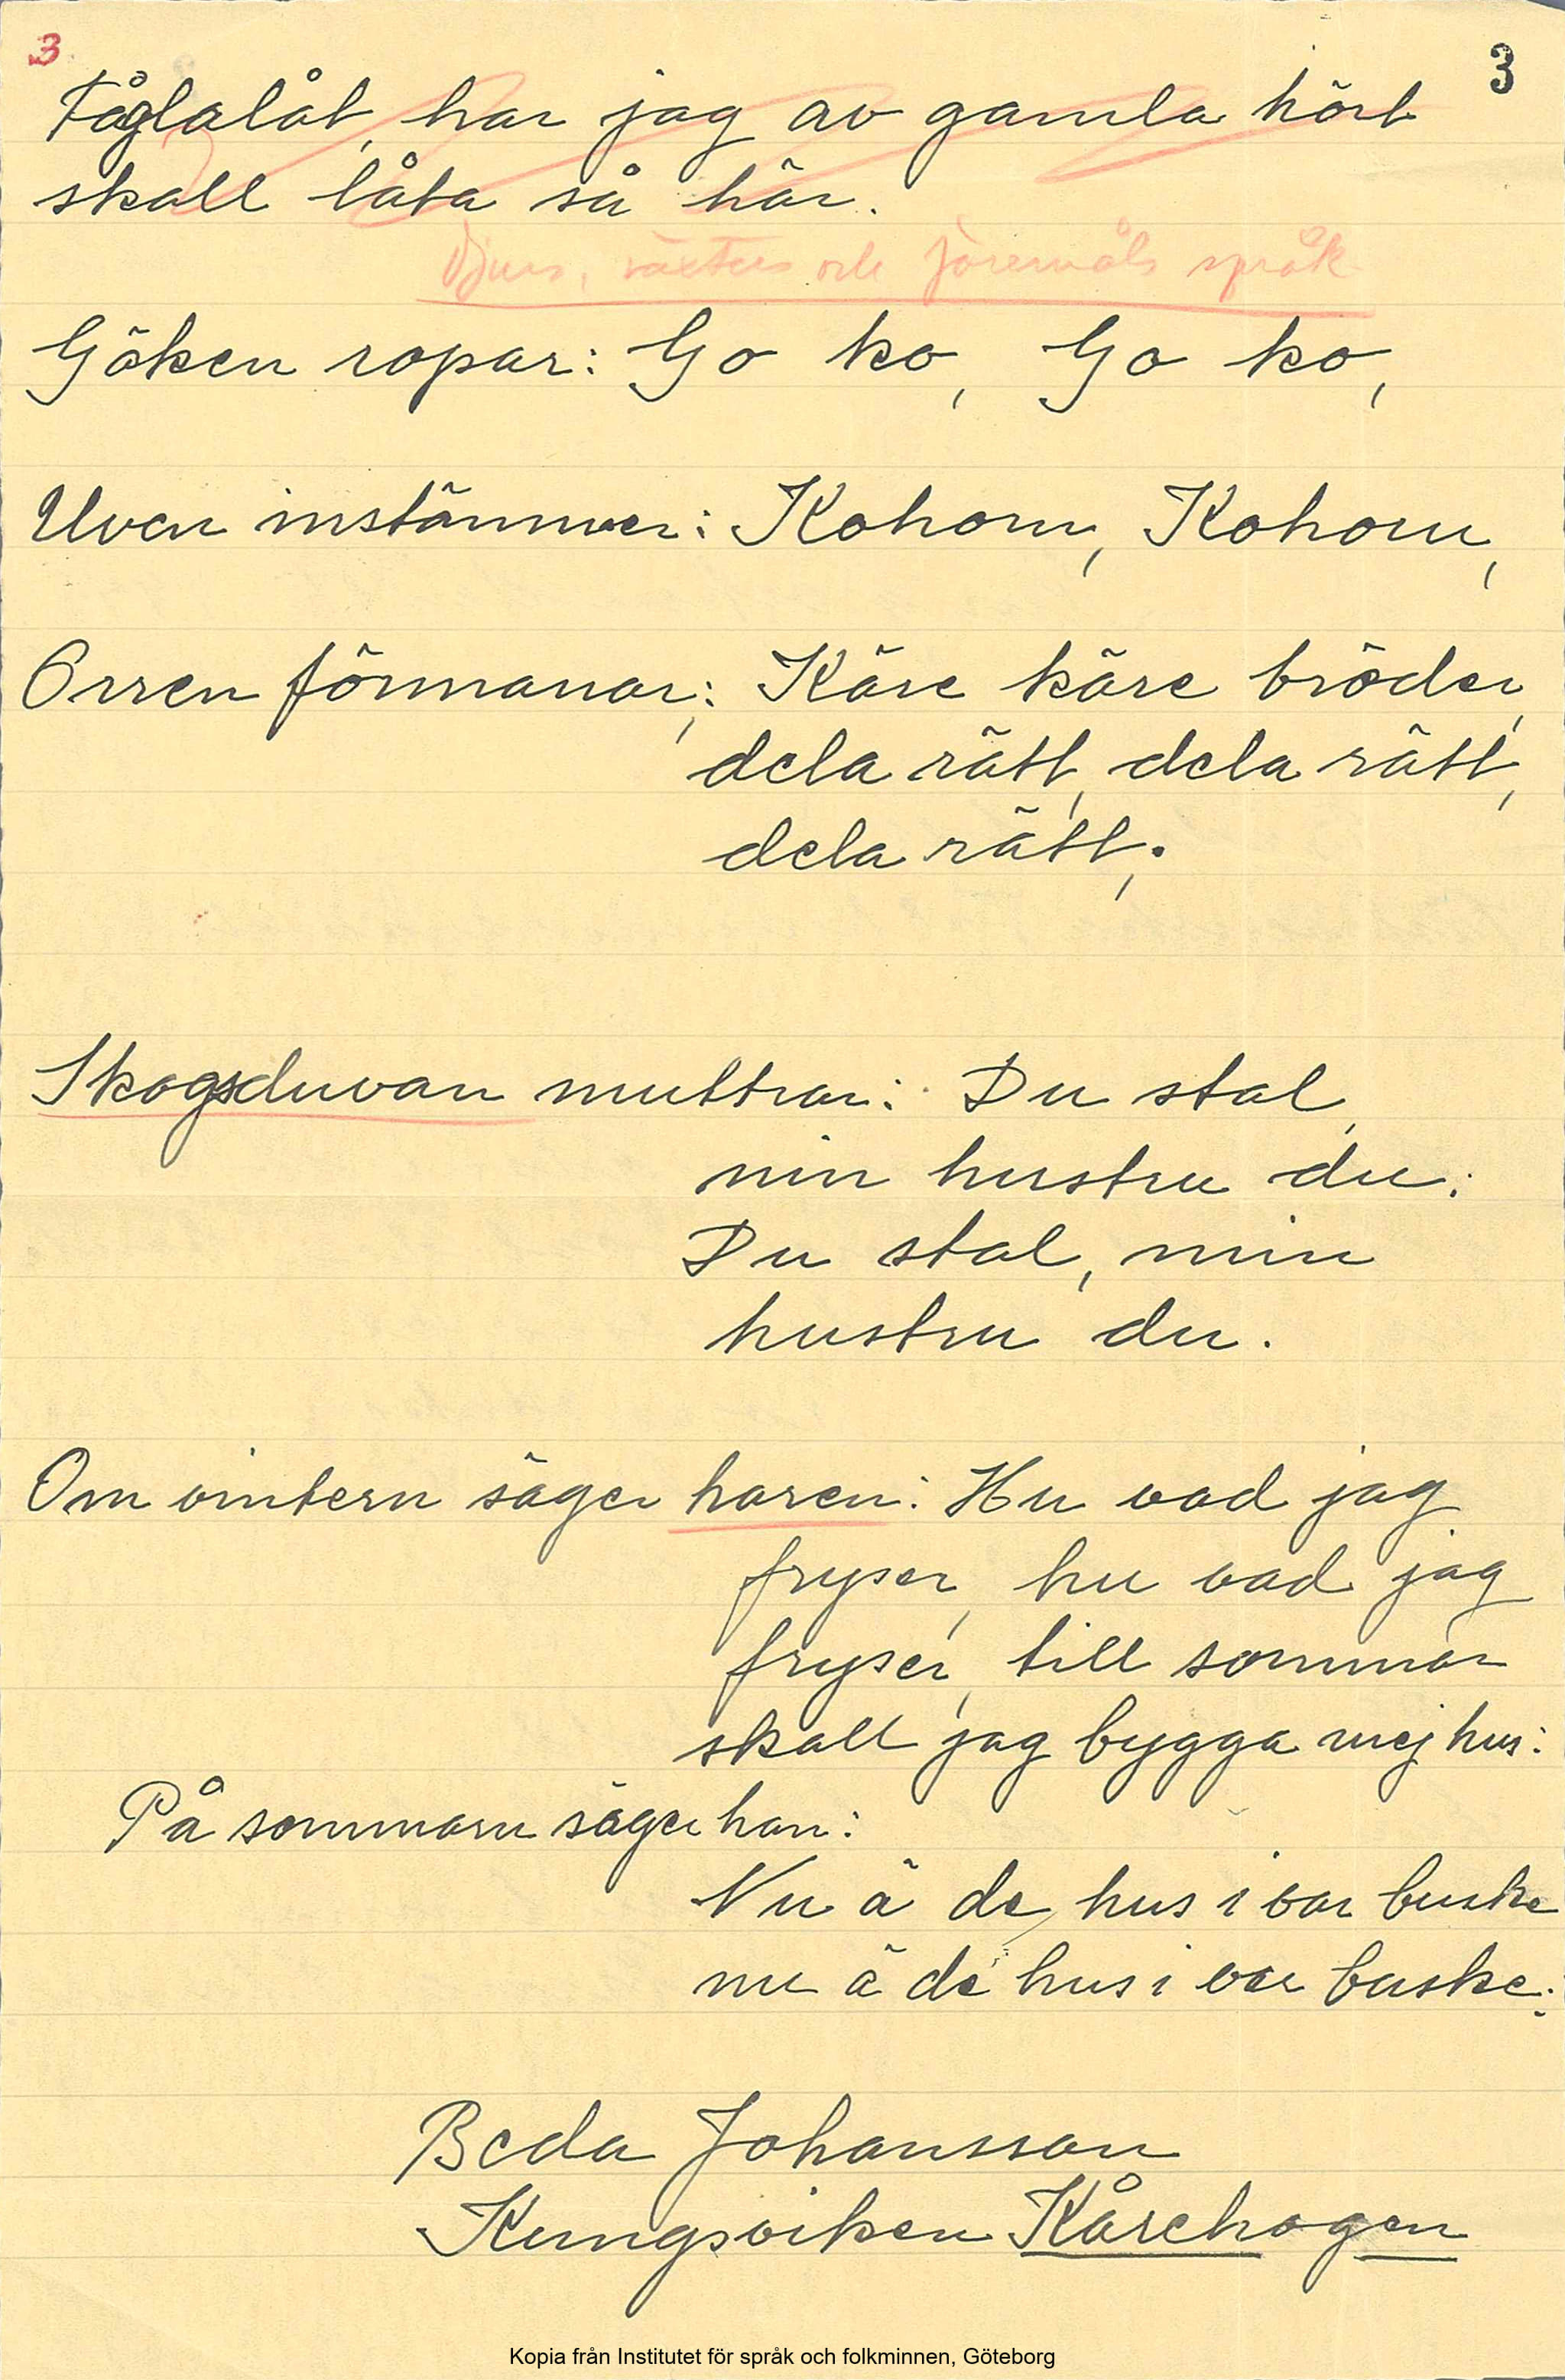 3
3
Fåglalåt, har jag av gamla hört
skall låta så här.
Djurs, växters och föremåls språk
Göken ropar: Go ko, Go ko,
Uven instämmer: Kohorn, Kohorn,
Orren förmanar,: Käre käre bröder,
dela rätt, dela rätt,
dela rätt,.
Skogsduvan muttrar: Du stal,
min hustru du:
Du stal, min
hustru du.
Om vintern säger haren: Hu vad jag
fryser, hu vad jag
fryser, till sommar
skall jag bygga mej hus:
På sommarn säger han:
Nu ä de, hus i var buske
nu ä de hus i var buske:
Beda Johansson
Kungsviken Kårehogen
Kopia från Institutet för språk och folkminnen, Göteborg